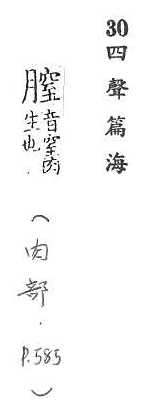 30四聲篇海
膣音窒肉
生也.
(肉部.P.585)